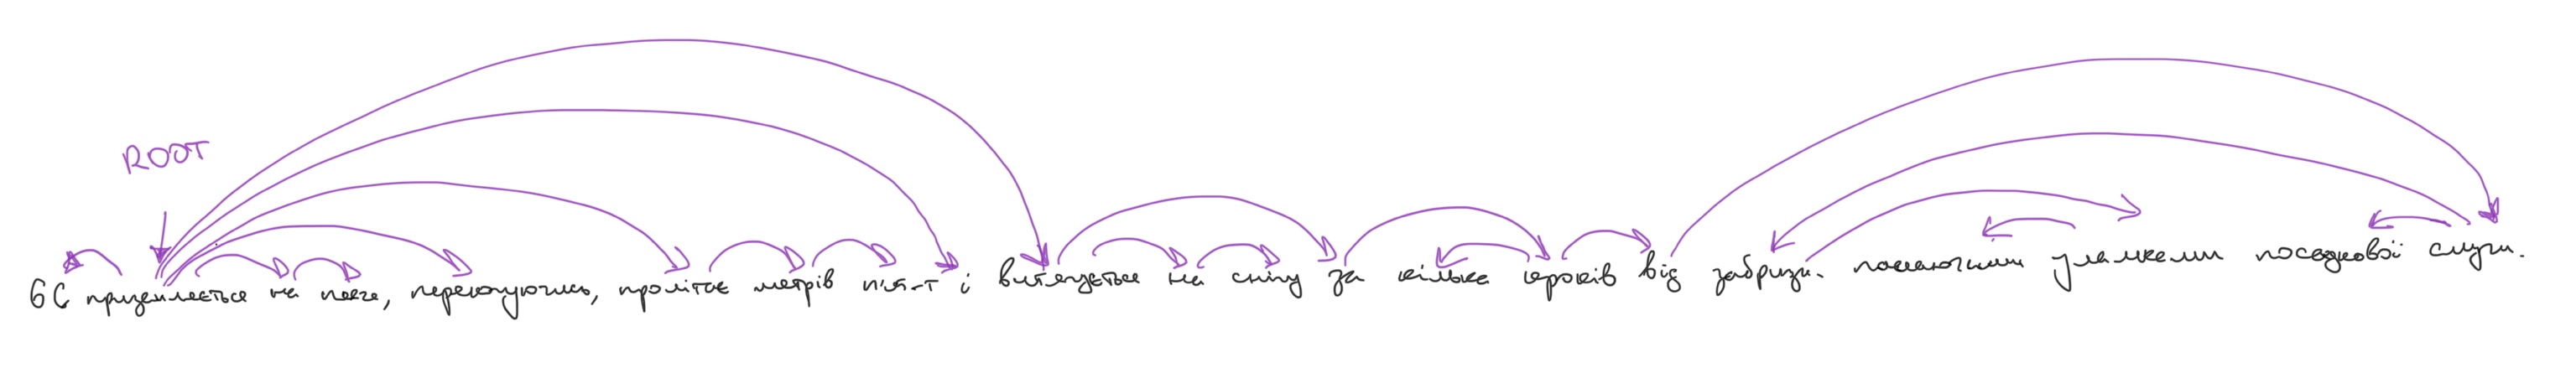 ROOT
БС приземляється на плече, перекочуючись, пролітає метрів п'ят і витягується на снігу за кілька кроків від забризк. уламками посадкової смуги.